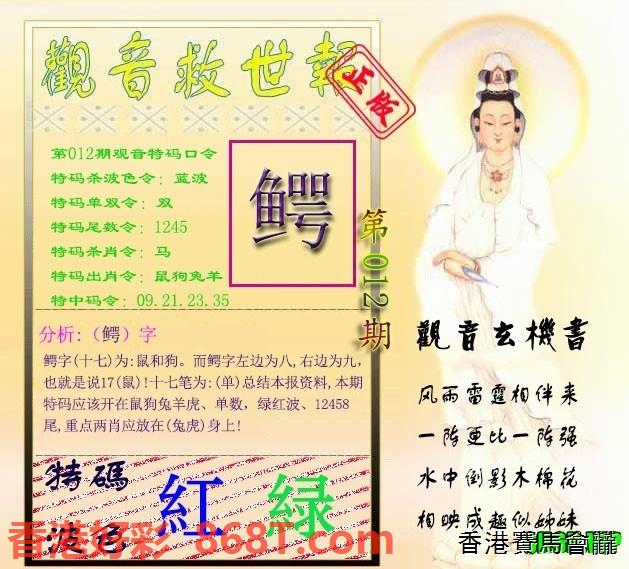 觀音救世報
正版
第012期观音特码口令
特码杀波色令：蓝波
特码单双令：双
特码尾数令：1245
特码杀肖令：马
特码出肖令：鼠狗兔羊
特中码令：09.21.23.35
鳄
第012期
分析:（鳄）字
鳄字(十七)为:鼠和狗。而鳄字左边为八,右边为九,
也就是说17(鼠)!十七笔为:(单)总结本报资料,本期
特码应该开在鼠狗兔羊虎、单数，绿红波、12458
尾,重点两肖应放在(兔虎)身上!
特碼
波色
紅 緑
觀音玄機書
风雨雷霆相伴来
一阵更比一阵强
水中倒影木棉花
相映成趣似姊妹
香港好彩 868T.com
香港賽馬會